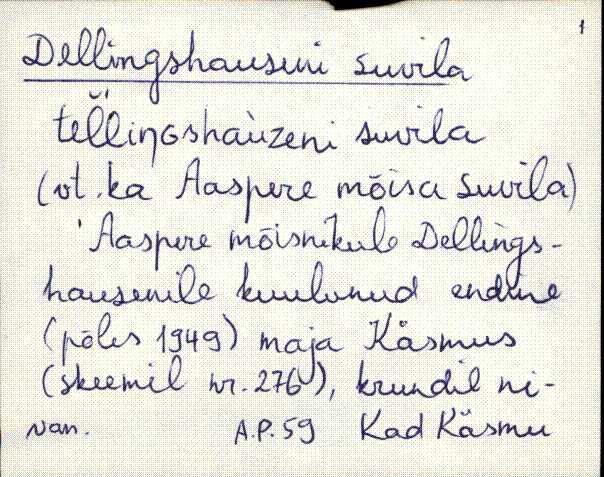 1
Dellingshauseni suvila
tel̆l̀iŋGshaùzeni suvila
(vt. ka Aaspere mõisa suvila)
'Aaspere mõisnikule Dellings-
hausenile kuulunud endine
(põles 1949) maja Käsmus
(skeemil nr. 276), krundil ni-
A.P.59 Kad Käsmu